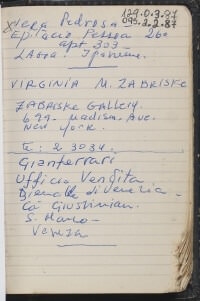 129.0.3.87
095.2.2.87
Vera Pedrosa
Epitacio Pessoa 260
apt. 303 –
Lagoa. Ipanema.
VIRGINIA M. ZABRISKE
ZABRISKE GALLERY.
699. Madison Ave.
New York.
Te: 2 3034.
Gianferrari
Ufficio Vendita
Biennale di Venezia –
Cá Giustinian.
S. Marco –
Venezia